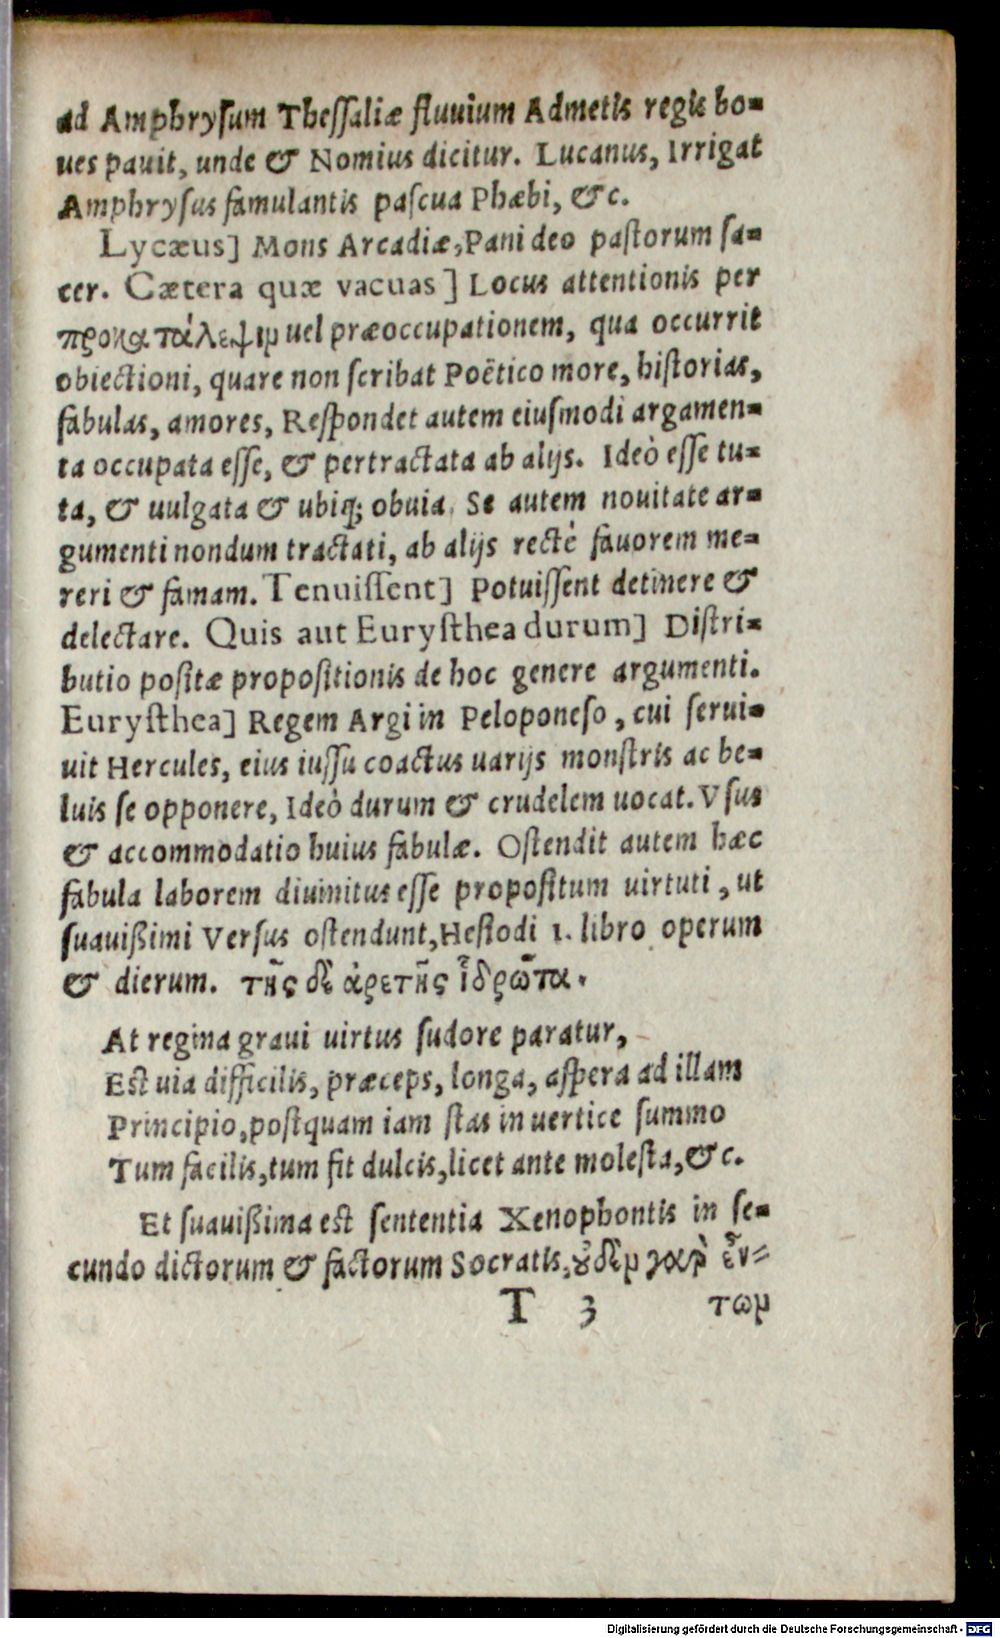 ad Amphrysum Thessaliæ fluuium Admetis regis bo-
ues pauit, unde & Nomius dicitur. Lucanus, Irrigat
Amphrysus famulantis pascua Phœbi, &c.
Lycæus] Mons Arcadiæ, Pani deo pastorum sa-
cer. Cætera quæ vacuas] Locus attentionis per
προκατάλεψιμ uel præoccupationem, qua occurrit
obiectioni, quare non scribat Poëtico more, historias,
fabulas, amores, Respondet autem eiusmodi argamen-
ta occupata esse, & pertractata ab alijs. Ideò esse tu-
ta, & uulgata & ubiq; obuia. Se autem nouitate ar-
gumenti nondum tractati, ab alijs rectè fauorem me-
reri & famam. Tenuissent] Potuissent detinere &
delectare. Quis aut Eurysthea durum] Distri-
butio positæ propositionis de hoc genere argumenti.
Eurysthea] Regem Argi in Peloponeso, cui serui-
uit Hercules, eius iussu coactus uarijs monstris ac be-
luis se opponere, Ideò durum & crudelem uocat. Vsus
& accommodatio huius fabulæ. Ostendit autem hæc
fabula laborem diuinitus esse propositum uirtuti, ut
suauißimi Versus ostendunt, Hesiodi 1. libro operum
& dierum. τῆς δὲ ἀρετῆς ἶδρῶτα.
At regina graui uirtus sudore paratur,
Est uia difficilis, præceps, longa, aspera ad illam
Principio, postquam iam stas in uertice summo
Tum facilis, tum fit dulcis, licet ante molesta, &c.
Et suauißima est sententia Xenophontis in se-
cundo dictorum & factorum Socratis, ȣ̓δὲμ γαρ̀ ἦν-
T 3 τωμ
Digitalisierung gefördert durch die Deutsche Forschungsgemeinschaft - DFG